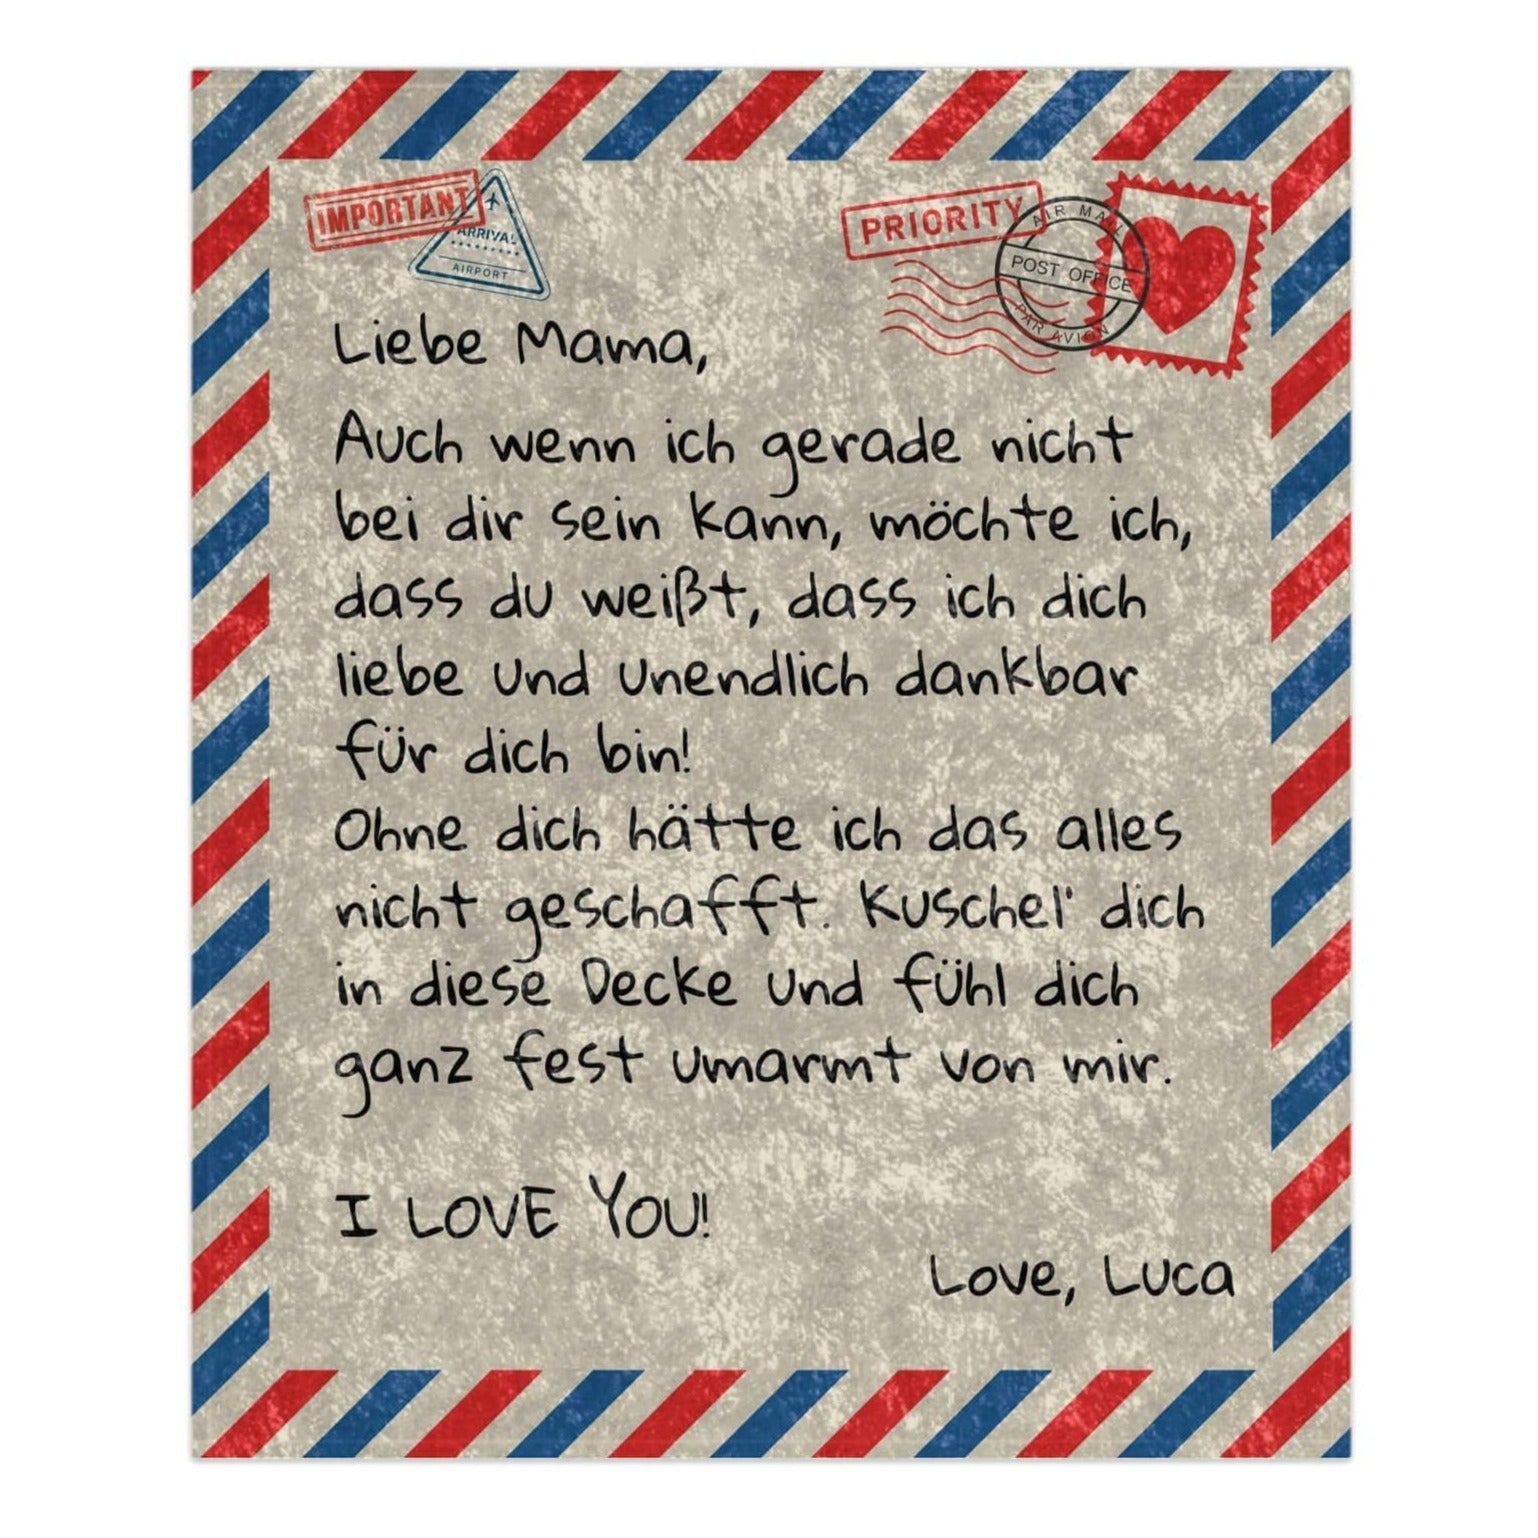 IMPORTANT
ARRIVAL
AIRPORT
PRIORITY
AIR MAIL
POST OFFICE
PAR AVION
Liebe Mama,
Auch wenn ich gerade nicht
bei dir sein kann, möchte ich,
dass du weißt, dass ich dich
liebe und unendlich dankbar
für dich bin!
Ohne dich hätte ich das alles
nicht geschafft. Kuschel' dich
in diese Decke und fühl dich
ganz fest umarmt von mir.
I LOVE YOU!
Love, Luca